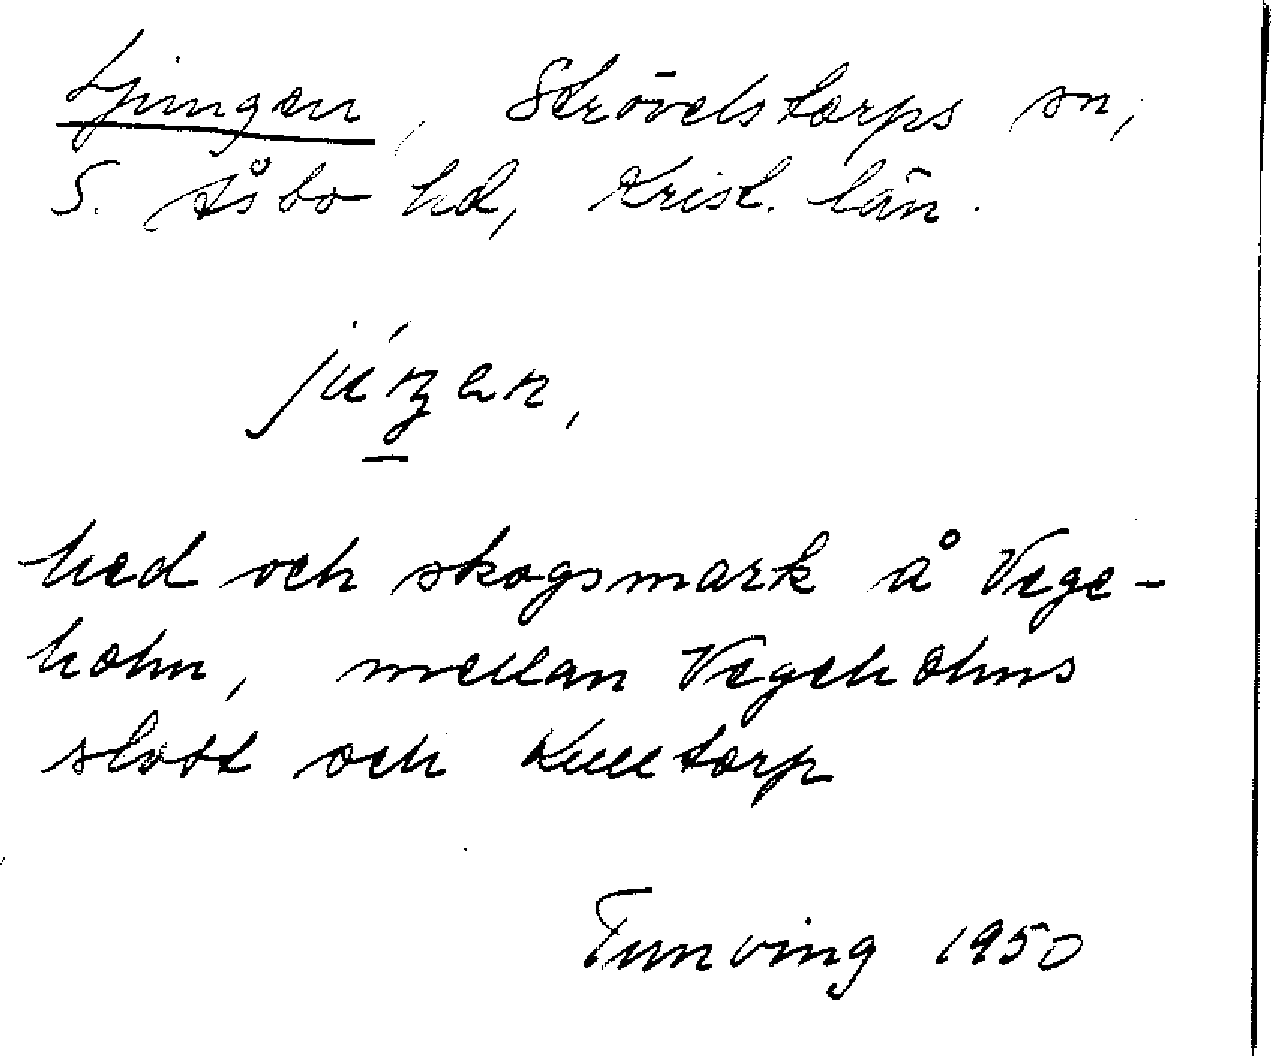 Ljungen, Strövelstorps sn,
S. Åsbo hd, Krist. län.
júŋen,
hed och skogsmark å Vege-
holm, mellan Vegeholms
slott och Kulltorp
Tunving 1950